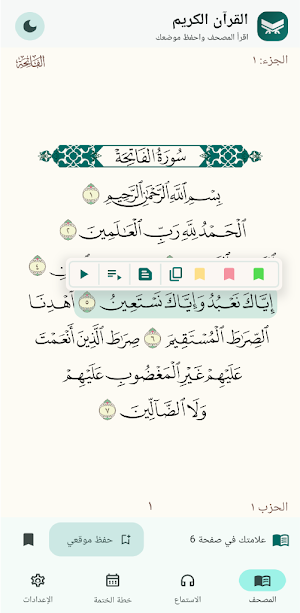 القرآن الكريم
اقرأ المصحف واحفظ موضعك
الجزء: ١
الفَاتِحَة
سُورَةُ الفَاتِحَةِ
بِسْمِ ٱللَّهِ ٱلرَّحْمَٰنِ ٱلرَّحِيمِ ١
ٱلْحَمْدُ لِلَّهِ رَبِّ ٱلْعَٰلَمِينَ ٢
٤
إِيَّاكَ نَعْبُدُ وَإِيَّاكَ نَسْتَعِينُ ٥ ٱهْدِنَا
ٱلصِّرَٰطَ ٱلْمُسْتَقِيمَ ٦ صِرَٰطَ ٱلَّذِينَ أَنْعَمْتَ
عَلَيْهِمْ غَيْرِ ٱلْمَغْضُوبِ عَلَيْهِمْ
وَلَا ٱلضَّآلِّينَ ٧
الحزب ١
١
علامتك في صفحة 6
حفظ موقعي
المصحف
الاستماع
خطة الختمة
الإعدادات